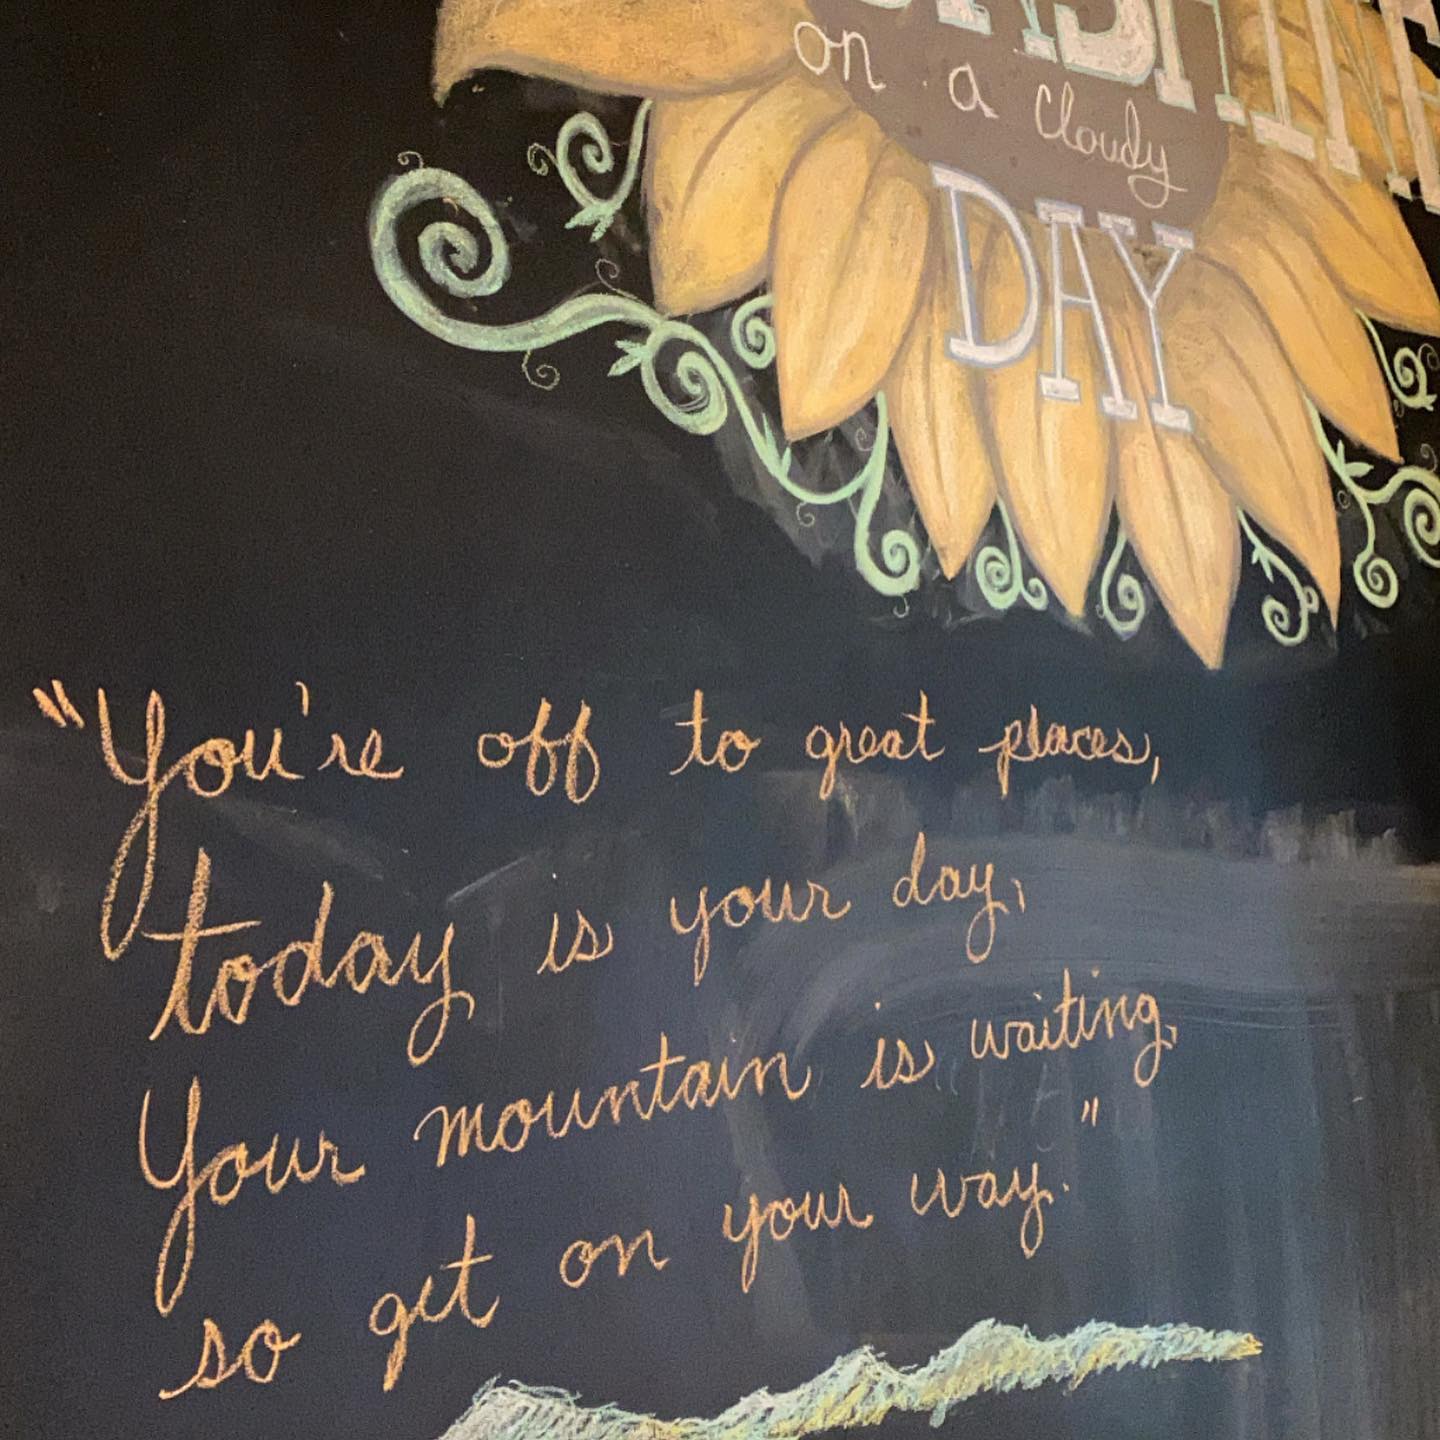 on a cloudy
DAY
"You're off to great places,
today is your day,
Your mountain is waiting,
so get on your way."